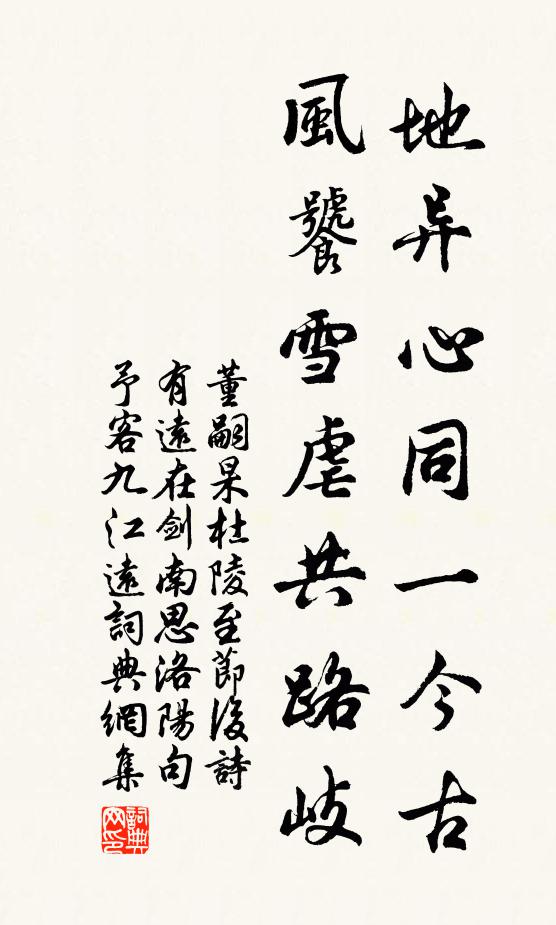 地异心同一今古
風饕雪虐共路岐
董嗣杲杜陵至節後詩
有遠在劍南思洛陽句
予客九江遠詞典網集
詞典网印